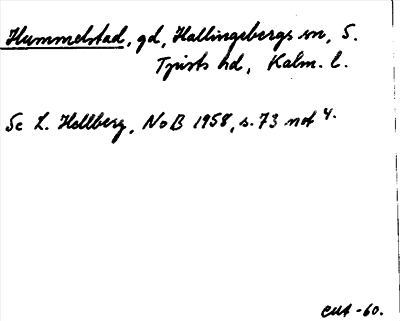 Hummelstad, gd, Hallingebergs sn, S.
Tjusts hd, Kalm. l.
Se L. Hellberg, NoB 1958, s. 73 not 4.
EUA -60.